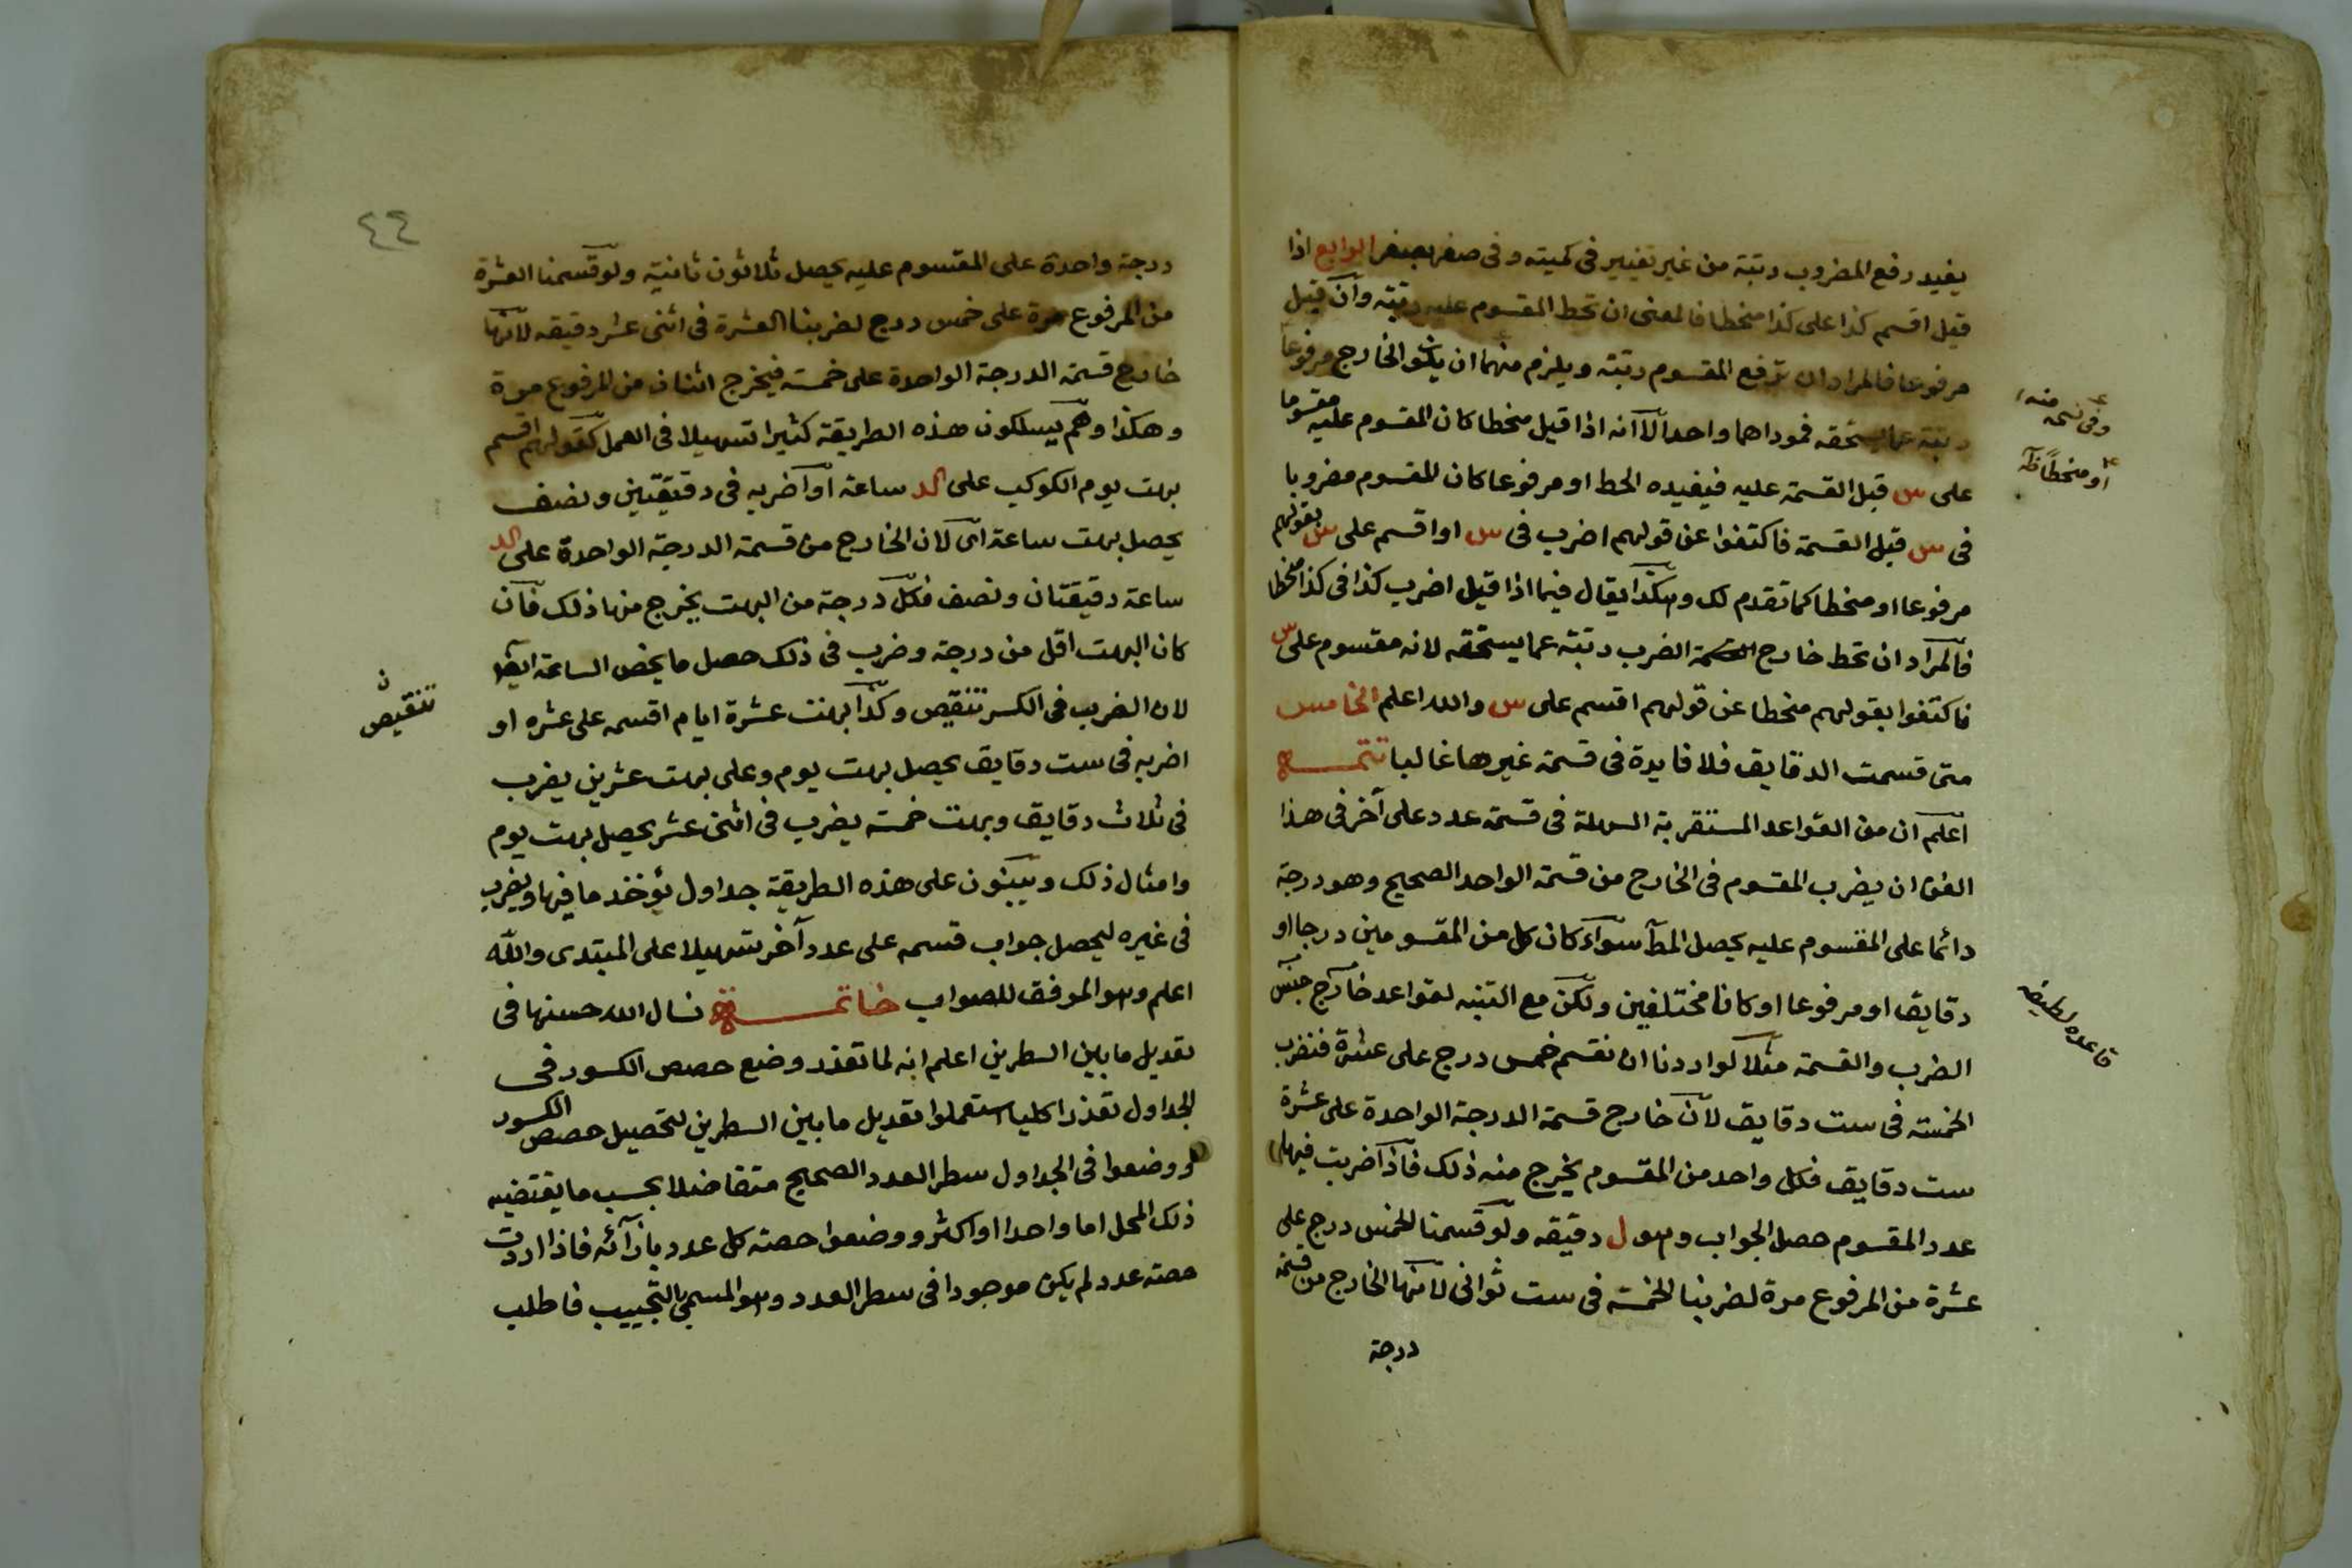 يفيد رفع المضروب رتبة من غير تغيير في كميته وفي صفر بصفر الرابع اذا
قيل اقسم كذا على كذا منحطا فالمعنى ان تحط المقسوم عليه رتبة وان قيل
مرفوعا فالمراد ان ترفع المقسوم رتبة ويلزم منهما ان يكون الخارج مرفوعا
رتبة عما يستحقه فموداهما واحد الا انه اذا قيل منحطا كان المقسوم عليه مقسوما
على س قبل القسمة عليه فيفيده الحط او مرفوعا كان المقسوم مضروبا
في س قبل القسمة فاكتفوا عن قولهم اضرب في س او اقسم على س بقولهم
مرفوعا او منحطا كما تقدم لك وهكذا يقال فيما اذا قيل اضرب كذا في كذا منحطا
فالمراد ان تحط خارج الضرب رتبة عما يستحقه لانه مقسوم على س
فاكتفوا بقولهم منحطا عن قولهم اقسم على س والله اعلم الخامس
متى قسمت الدقايق فلا فايدة في قسمة غيرها غالبا تتمة
اعلم ان من القواعد المستقربة السهلة في قسمة عدد على آخر في هذا
الفن ان يضرب المقسوم في الخارج من قسمة الواحد الصحيح وهو درجة
دائما على المقسوم عليه يحصل المط سواء كان كل من المقسومين درجا او
دقايق او مرفوعا او كانا مختلفين ولكن مع التنبه لقواعد خارج جنس
الضرب والقسمة مثلا لو اردنا ان نقسم خمس درج على عشرة فنضرب
الخمسة في ست دقايق لان خارج قسمة الدرجة الواحدة على عشرة
ست دقايق فكل واحد من المقسوم يخرج منه ذلك فاذا ضربت فيها
عدد المقسوم حصل الجواب وهو ل دقيقه ولو قسمنا الخمس درج على
عشرة من المرفوع مرة لضربنا الخمسة في ست ثواني لانها الخارج من قسمة
درجة
وفي نسخه منه
او منحطا ظ
قاعده لطيفه
٤٤
درجة واحدة على المقسوم عليه يحصل ثلاثون ثانية ولو قسمنا العشرة
من المرفوع مرة على خمس درج لضربنا العشرة في اثنى عشر دقيقه لانها
خارج قسمة الدرجة الواحدة على خمسة فيخرج اثنان من المرفوع مرة
وهكذا وهم يسلكون هذه الطريقة كثيرا تسهيلا في العمل كقولهم اقسم
بهت يوم الكوكب على كد ساعة او اضربه في دقيقتين ونصف
يحصل بهت ساعة اى لان الخارج من قسمة الدرجة الواحدة على كد
ساعة دقيقتان ونصف فكل درجة من البهت يخرج منها ذلك فان
كان البهت اقل من درجة وضرب في ذلك حصل ما يخص الساعة ايضا
لان الضرب في الكسر تنقيص وكذا بهت عشرة ايام اقسمه على عشره او
اضربه في ست دقايق يحصل بهت يوم وعلى بهت عشرين يضرب
في ثلاث دقايق وبهت خمسة يضرب في اثنى عشر يحصل بهت يوم
وامثال ذلك ويبنون على هذه الطريقة جداول يؤخذ ما فيها ويضرب
في غيره ليحصل جواب قسمه على عدد آخر تسهيلا على المبتدى والله
اعلم وهو الموفق للصواب خاتمة نسال الله حسنها في
تعديل ما بين السطرين اعلم انه لما تعذر وضع حصص الكسور في
الجداول تعذرا كليا استعملوا تعديل ما بين السطرين لتحصيل حصص الكسور
ووضعوا في الجداول سطر العدد الصحيح متفاضلا بحسب ما يقتضيه
ذلك المحل اما واحدا او اكثر ووضعوا حصة كل عدد بازائه فاذا اردت
حصة عدد لم يكن موجودا في سطر العدد وهو المسمى بالتجييب فاطلب
ن
تنقيص